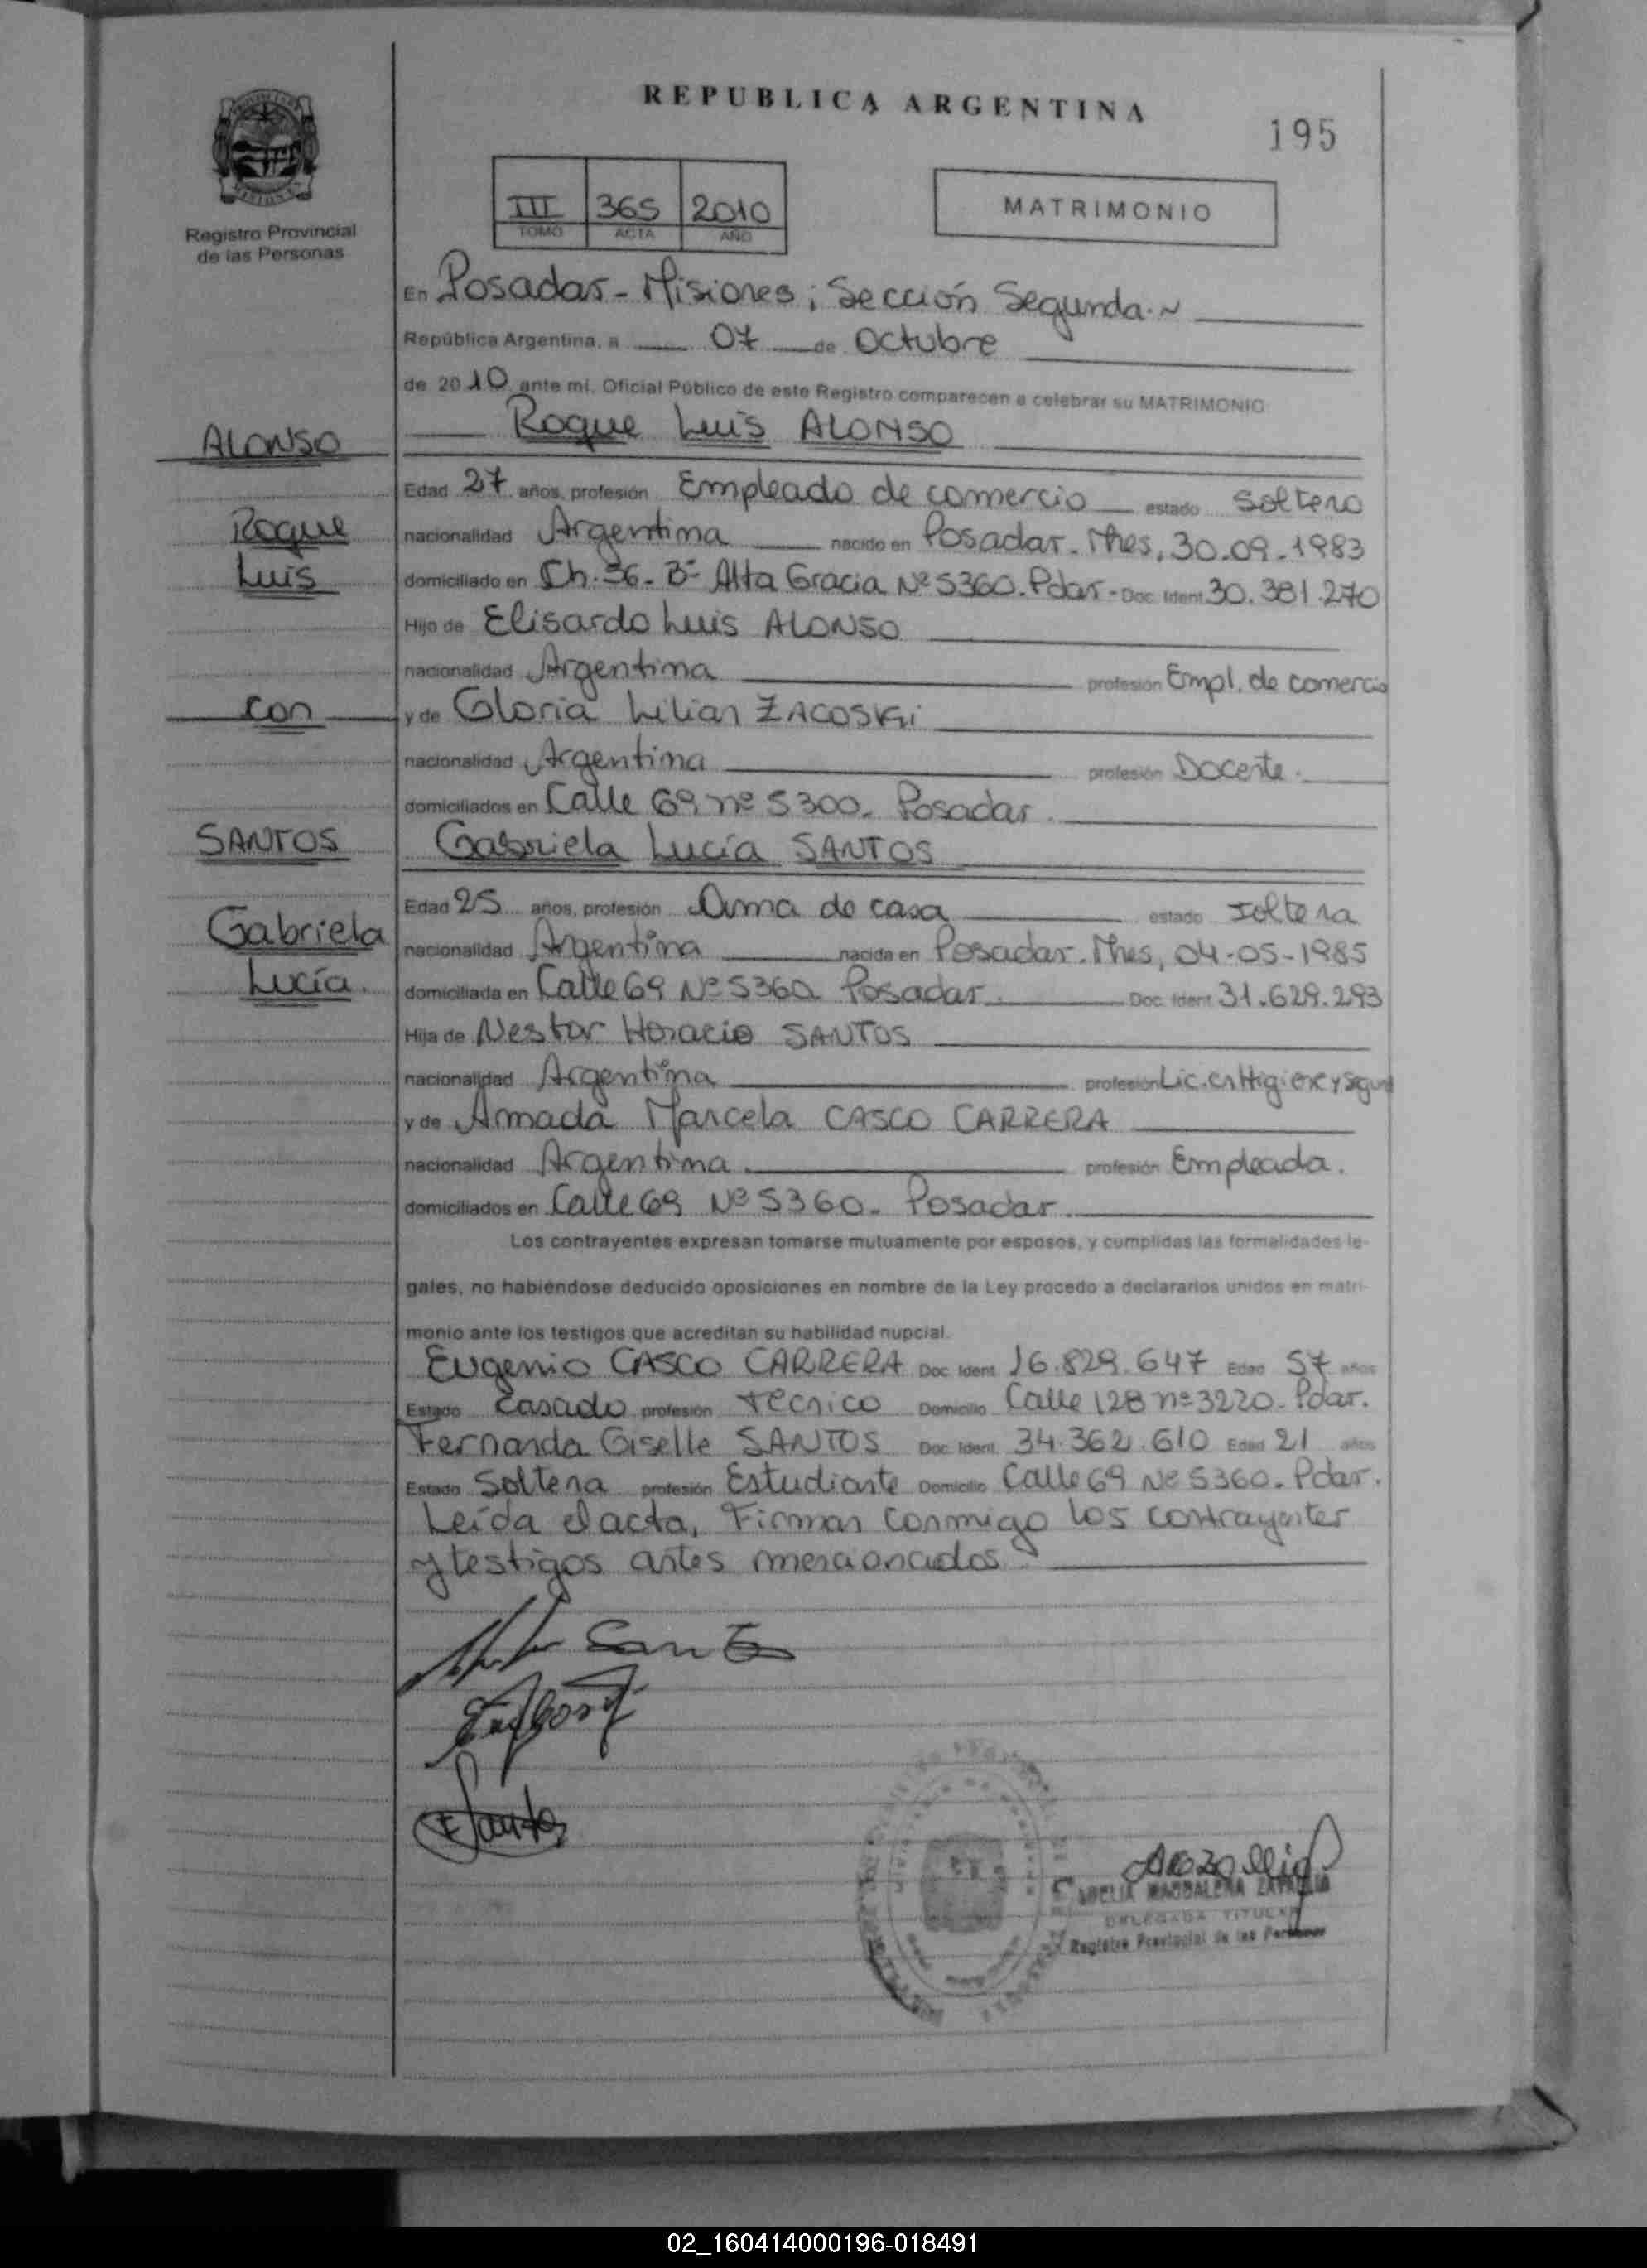 REPUBLICA ARGENTINA
195
III 365 2010
TOMO ACTA AÑO
MATRIMONIO
Registro Provincial
de las Personas
En Posadas - Misiones; Sección Segunda.~
República Argentina, a 07 de Octubre
de 2010 ante mi, Oficial Público de este Registro comparecen a celebrar su MATRIMONIO
ALONSO
Roque Luis ALONSO
Edad 27 años, profesión Empleado de comercio estado Soltero
Roque
nacionalidad Argentina nacido en Posadas. Mnes, 30-09-1983
Luis
domiciliado en Ch. 36 - Bº Alta Gracia Nº 5360. Pdas - Doc. Ident. 30.381.270
Hijo de Elisardo Luis ALONSO
nacionalidad Argentina profesión Empl. de comercio
con
y de Gloria Lilian ZACOSKi
nacionalidad Argentina profesión Docente.
domiciliados en Calle 69 nº 5300. Posadas.
SANTOS
Gabriela Lucía SANTOS
Edad 25 años, profesión Ama de casa estado soltera
Gabriela
nacionalidad Argentina nacida en Posadas. Mnes, 04-05-1985
Lucía.
domiciliada en Calle 69 Nº 5360 Posadas. Doc. Ident. 31.629.293
Hija de Nestor Horacio SANTOS
nacionalidad Argentina profesión Lic. en Higiene y Segur
y de Amada Marcela CASCO CARRERA
nacionalidad Argentina. profesión Empleada.
domiciliados en Calle 69 Nº 5360. Posadas.
Los contrayentes expresan tomarse mutuamente por esposos, y cumplidas las formalidades le-
gales, no habiéndose deducido oposiciones en nombre de la Ley procedo a declararlos unidos en matri-
monio ante los testigos que acreditan su habilidad nupcial.
Eugenio CASCO CARRERA Doc. Ident. 16.829.647 Edad 57 años
Estado Casado profesión Técnico Domicilio Calle 128 nº 3220. Pdas.
Fernanda Giselle SANTOS Doc. Ident. 34.362.610 Edad 21 años
Estado Soltera profesión Estudiante Domicilio Calle 69 Nº 5360. Pdas.
Leída el acta, Firman conmigo los contrayentes
y testigos antes mencionados.
Santos
Santos
MAGDALENA
DELEGADA TITULAR
Registro Provincial de las Personas
02_160414000196-018491